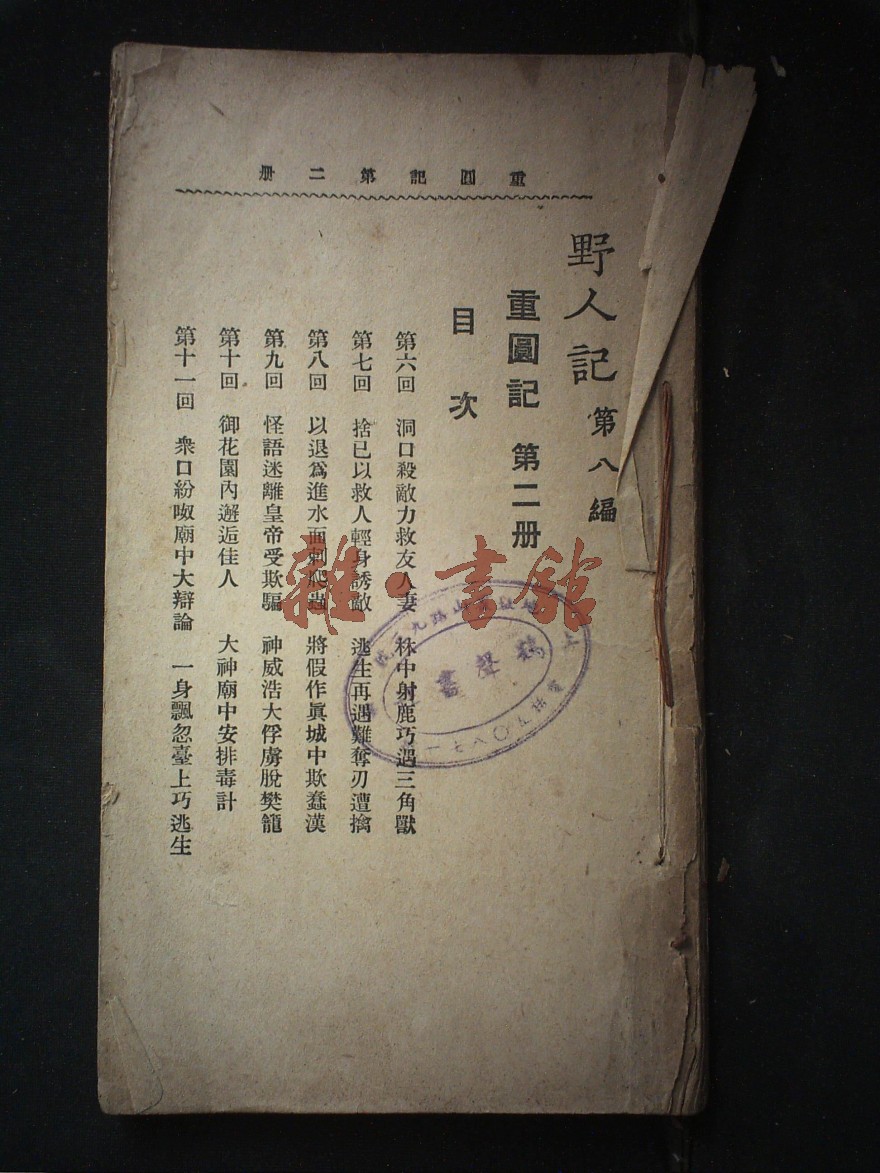 重圓記第二册
野人記 第八編
重圓記 第二册
目次
第六回 洞口殺敵力救友人妻 林中射鹿巧遇三角獸
第七回 捨已以救人輕身誘敵 逃生再遇難奪刃遭擒
第八回 以退爲進水面刺爬蟲 將假作眞城中欺蠢漢
第九回 怪語迷離皇帝受欺騙 神威浩大俘虜脫樊籠
第十回 御花園內邂逅佳人 大神廟中安排毒計
第十一回 衆口紛呶廟中大辯論 一身飄忽臺上巧逃生
雜·書館
鶴聲書